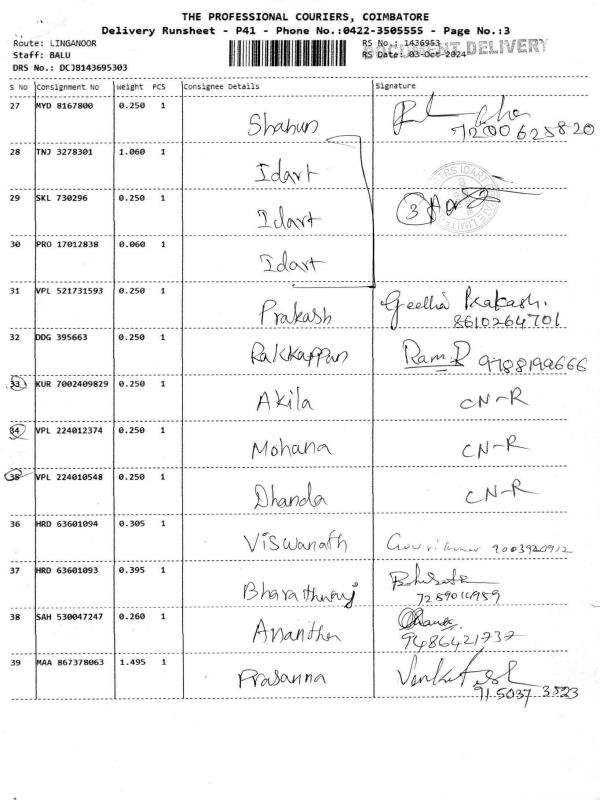 THE PROFESSIONAL COURIERS, COIMBATORE
Delivery Runsheet - P41 - Phone No.:0422-3505555 - Page No.:3
Route: LINGANOOR RS No.: 1436953
DOCUMENT DELIVERY
Staff: BALU RS Date: 03-Oct-2024
DRS No.: DCJB143695303
S No Consignment No Weight PCS Consignee Details Signature
27 MYD 8167800 0.250 1
Shabun
7200625820
28 TNJ 3278301 1.060 1
Idart
29 SKL 730296 0.250 1
Idart 3
30 PRO 17012838 0.060 1
Idart
31 VPL 521731593 0.250 1
Prakash Geetha Prakash.
8610264701
32 DDG 395663 0.250 1
Rakkappan Ram.R 9788199666
33 KUR 7002409829 0.250 1
Akila CN-R
34 VPL 224012374 0.250 1
Mohana CN-R
35 VPL 224010548 0.250 1
Dhanda CN-R
36 HRD 63601094 0.305 1
Viswanath 9003920912
37 HRD 63601093 0.395 1
Bharathwaj
7259014959
38 SAH 530047247 0.260 1
Ananthen
9486421737
39 MAA 867378063 1.495 1
Prasanna Venkatesh
91 5037 3523